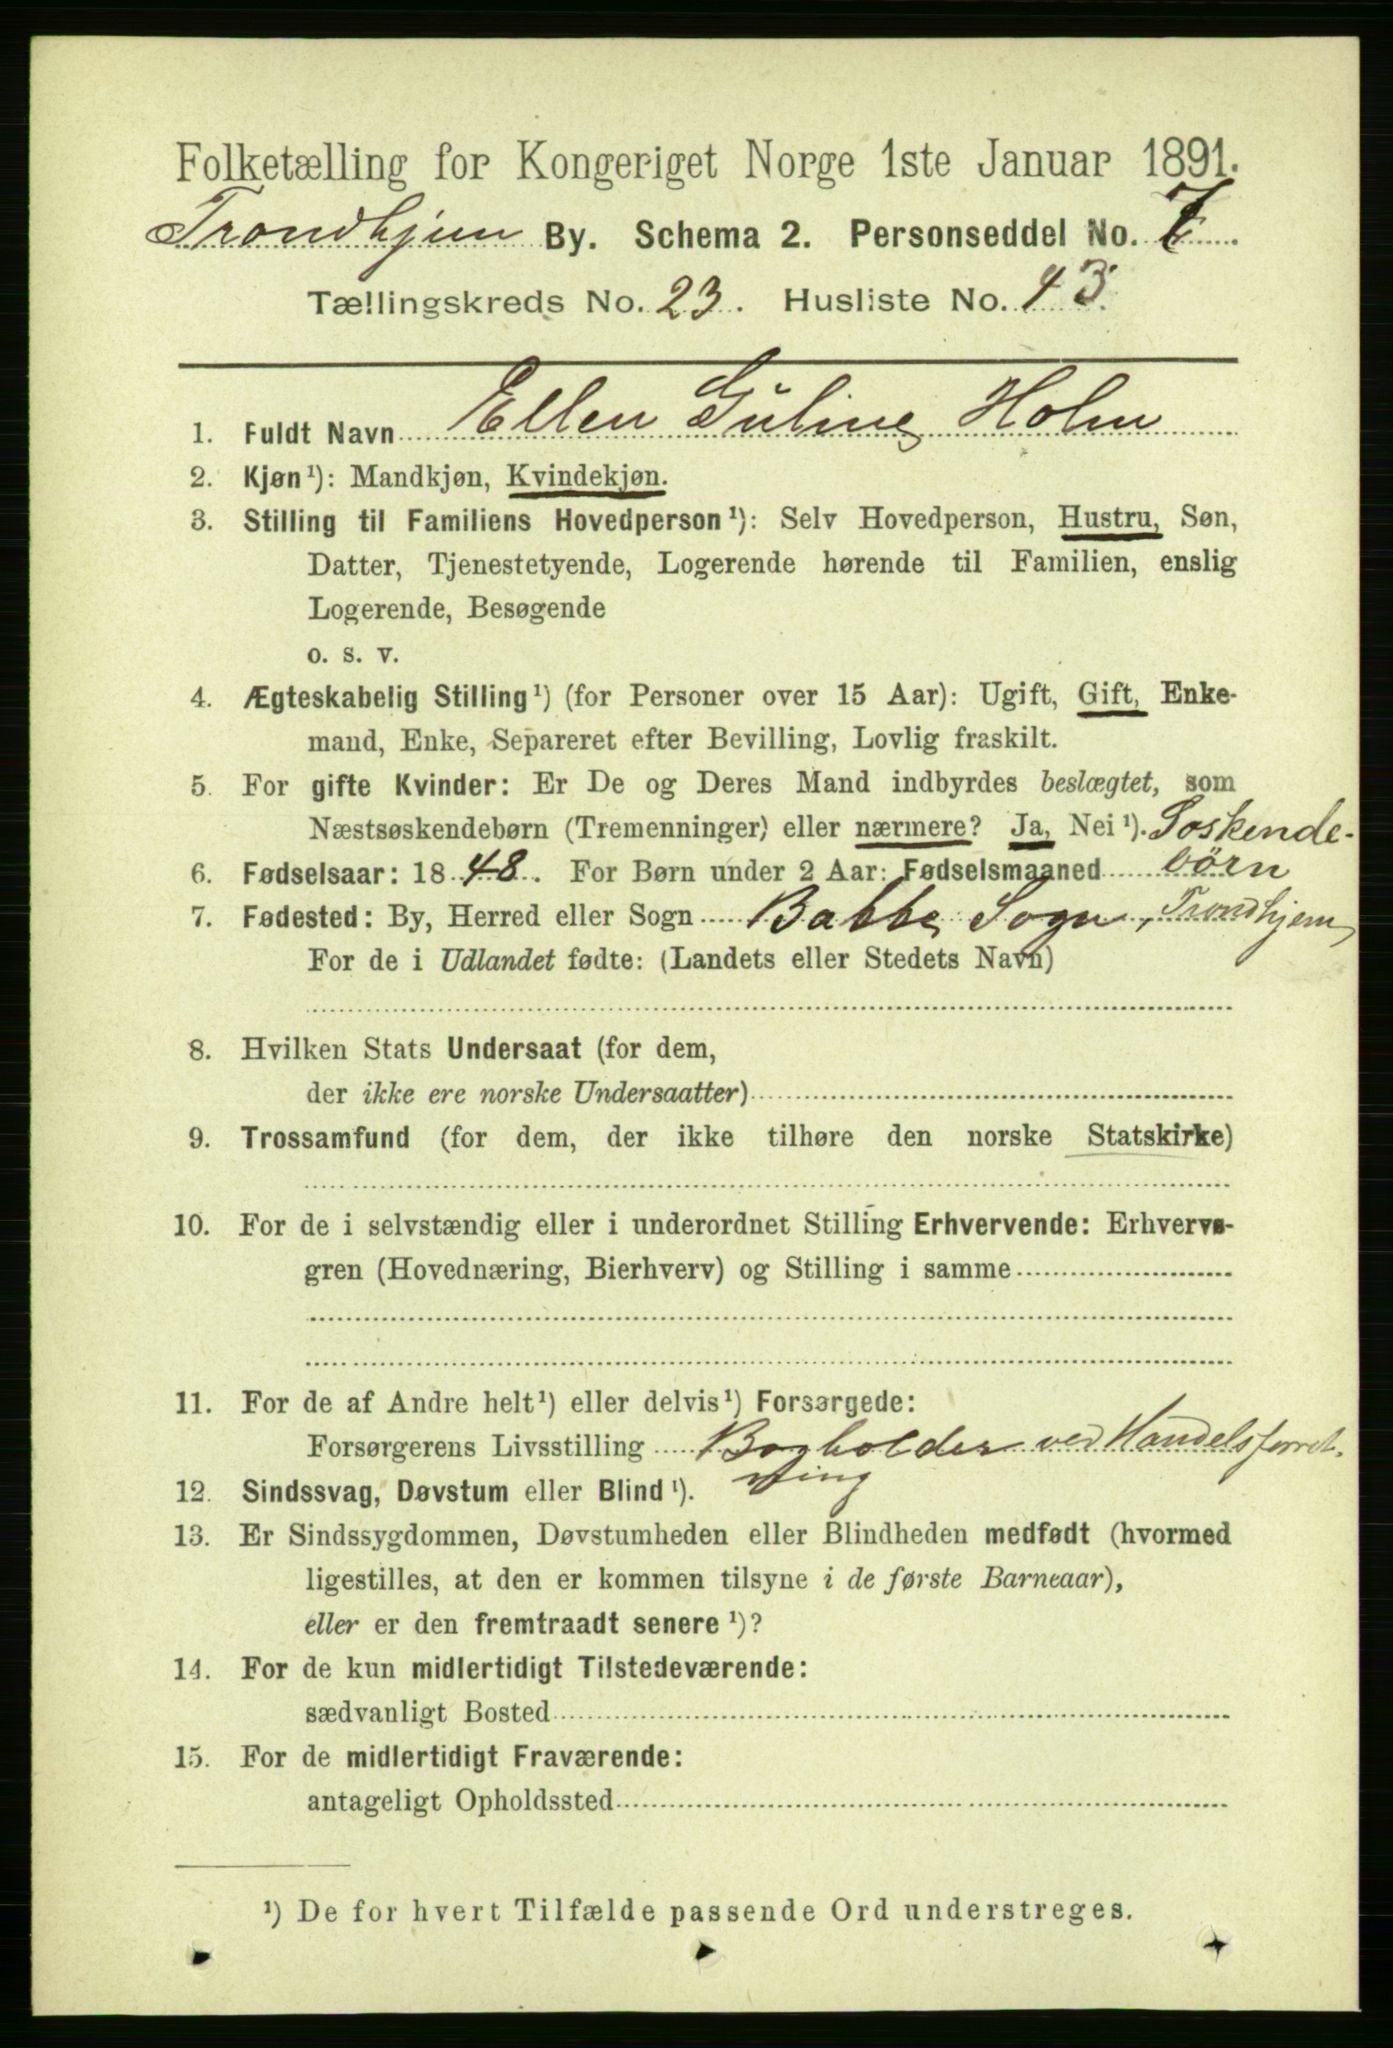 Folketælling for Kongeriget Norge 1ste Januar 1891.
Trondhjem By. Schema 2. Personseddel No. 7
Tællingskreds No. 23. Husliste No. 43.
1. Fuldt Navn Ellen Juline Holm
2. Kjøn¹): Mandkjøn, Kvindekjøn.
3. Stilling til Familiens Hovedperson¹): Selv Hovedperson, Hustru, Søn,
Datter, Tjenestetyende, Logerende hørende til Familien, enslig
Logerende, Besøgende
o. s. v.
4. Ægteskabelig Stilling¹) (for Personer over 15 Aar): Ugift, Gift, Enke-
mand, Enke, Separeret efter Bevilling, Lovlig fraskilt.
5. For gifte Kvinder: Er De og Deres Mand indbyrdes beslægtet, som
Næstsøskendebørn (Tremenninger) eller nærmere? Ja, Nei¹). Soskende-
börn
6. Fødselsaar: 1848. For Børn under 2 Aar: Fødselsmaaned
7. Fødested: By, Herred eller Sogn Bakke Sogn, Trondhjem
For de i Udlandet fødte: (Landets eller Stedets Navn)
8. Hvilken Stats Undersaat (for dem,
der ikke ere norske Undersaatter)
9. Trossamfund (for dem, der ikke tilhøre den norske Statskirke)
10. For de i selvstændig eller i underordnet Stilling Erhvervende: Erhvervs-
gren (Hovednæring, Bierhverv) og Stilling i samme
11. For de af Andre helt¹) eller delvis¹) Forsørgede:
Forsørgerens Livsstilling Bogholder ved Handelsforret-
ning
12. Sindssvag, Døvstum eller Blind¹).
13. Er Sindssygdommen, Døvstumheden eller Blindheden medfødt (hvormed
ligestilles, at den er kommen tilsyne i de første Barneaar),
eller er den fremtraadt senere¹)?
14. For de kun midlertidigt Tilstedeværende:
sædvanligt Bosted
15. For de midlertidigt Fraværende:
antageligt Opholdssted
¹) De for hvert Tilfælde passende Ord understreges.